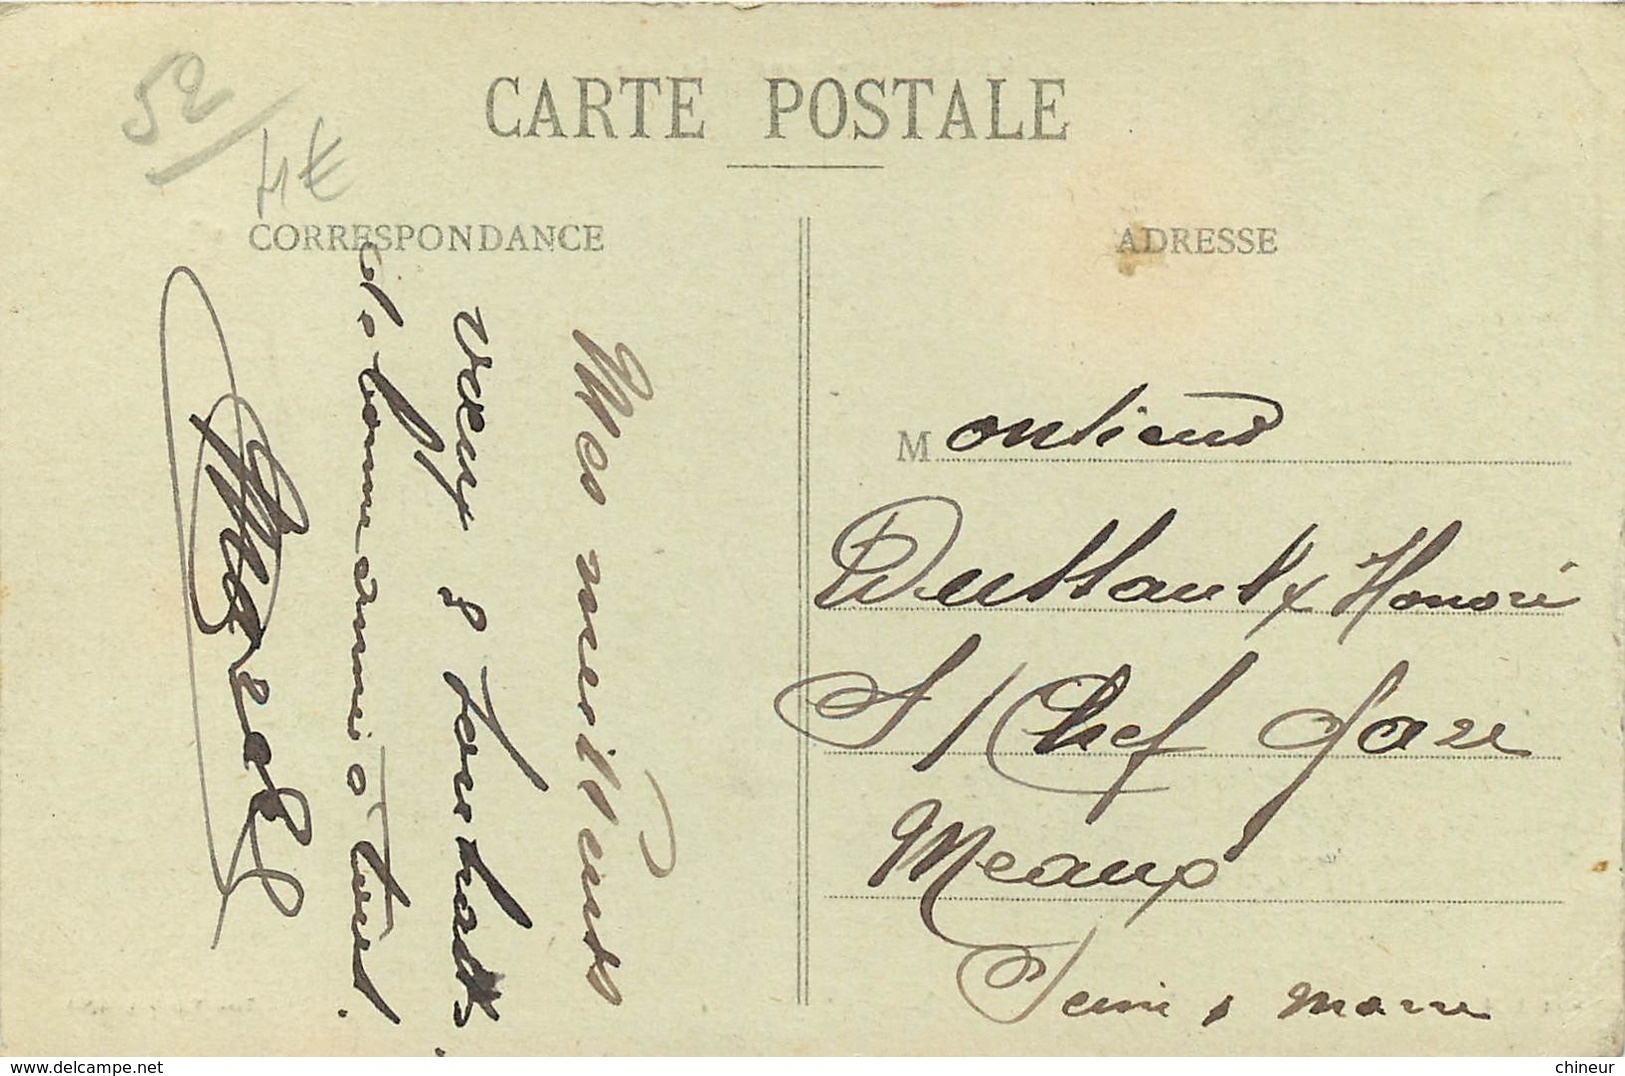 52/4€
CARTE POSTALE
CORRESPONDANCE
ADRESSE
Mes meilleurs
vœux & souhaits
de bonne année à tous.
Marcel
Monsieur
Honoré
S/Chef Gare
Meaux
Seine & Marne
www.delcampe.net
chineur